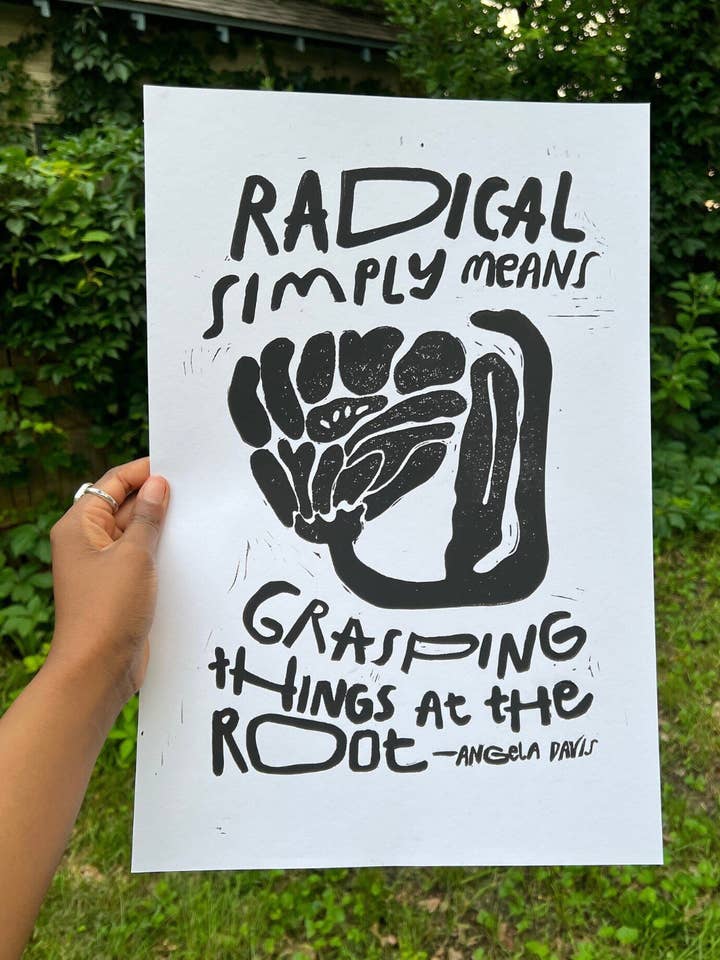 RADICAL
SIMPLY MEANS
GRASPING
tHINGS At tHe
ROOt —ANGeLA DAVIS